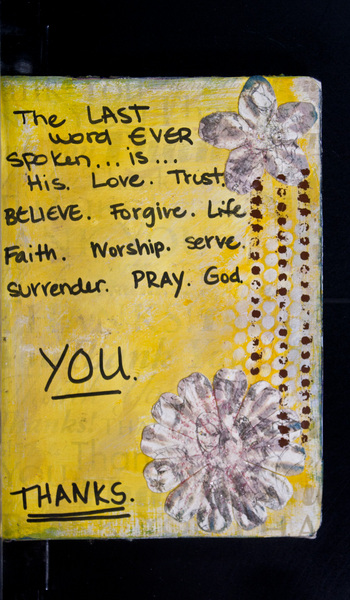 The LAST
word EVER
spoken... is...
His. Love. Trust.
BELIEVE. Forgive. Life
Faith. Worship. serve.
surrender. PRAY. God
YOU.
THANKS.